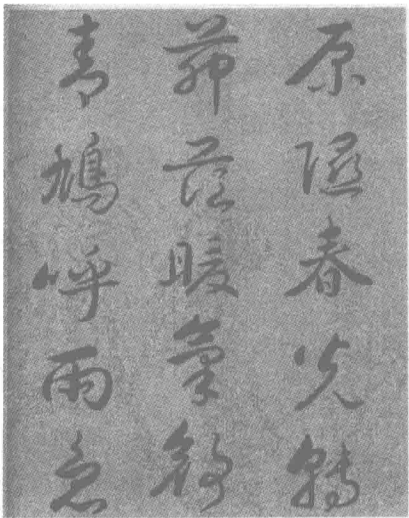 原隰春光轉
茅茨暖氣舒
青鳩呼雨急